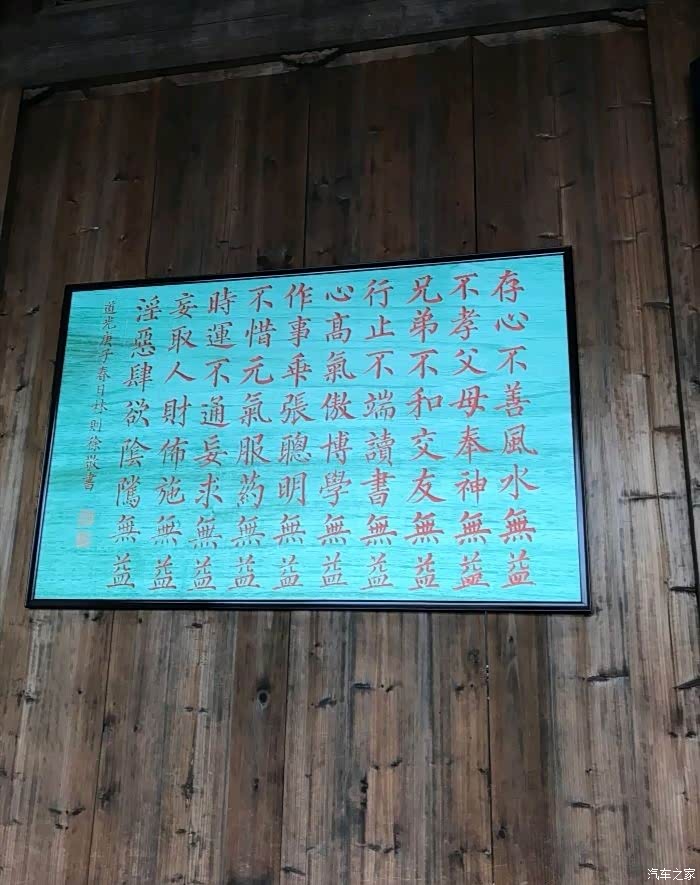 存心不善風水無益
不孝父母奉神無益
兄弟不和交友無益
行止不端讀書無益
心高氣傲博學無益
作事乖張聰明無益
不惜元氣服葯無益
時運不通妄求無益
妄取人財佈施無益
淫惡肆欲陰騭無益
道光庚子春日林則徐敬書
汽车之家